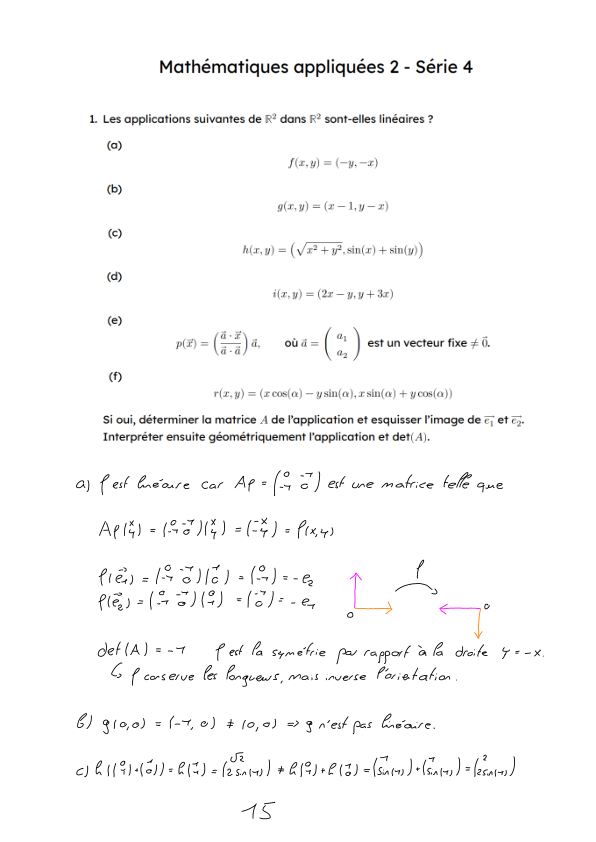 Mathématiques appliquées 2 - Série 4
1. Les applications suivantes de ℝ² dans ℝ² sont-elles linéaires ?
(a)
f(x, y) = (−y, −x)
(b)
g(x, y) = (x − 1, y − x)
(c)
h(x, y) = (√(x² + y²), sin(x) + sin(y))
(d)
i(x, y) = (2x − y, y + 3x)
(e)
p(x⃗) = ((a⃗ · x⃗)/(a⃗ · a⃗)) a⃗, où a⃗ = (a₁ a₂) est un vecteur fixe ≠ 0⃗.
(f)
r(x, y) = (x cos(α) − y sin(α), x sin(α) + y cos(α))
Si oui, déterminer la matrice A de l'application et esquisser l'image de e₁⃗ et e₂⃗.
Interpréter ensuite géométriquement l'application et det(A).
a) f est linéaire car Af = (0 -1 ; -1 0) est une matrice telle que
Af(x ; y) = (0 -1 ; -1 0)(x ; y) = (-x ; -y) = f(x,y)
f(e₁⃗) = (0 -1 ; -1 0)(1 ; 0) = (0 ; -1) = -e₂
f(e₂⃗) = (0 -1 ; -1 0)(0 ; 1) = (-1 ; 0) = -e₁
f
0
0
det(A) = -1 f est la symétrie par rapport à la droite y = -x.
↳ f conserve les longueurs, mais inverse l'orietation.
b) g(0,0) = (-1, 0) ≠ (0,0) => g n'est pas linéaire.
c) h((0 ; 1)+(1 ; 0)) = h(1 ; 1) = (√2 ; 2 sin(1)) ≠ h(0 ; 1)+h(1 ; 0) = (1 ; sin(1))+(1 ; sin(1)) = (2 ; 2sin(1))
15